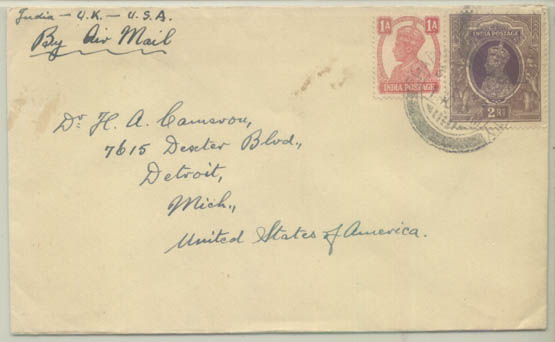 India – U.K. – U.S.A.
By Air Mail
1A 1A
INDIA POSTAGE
INDIA POSTAGE
2 RS
Dr. H. A. Cameron,
7615 Dexter Blvd.,
Detroit,
Mich.,
United States of America.